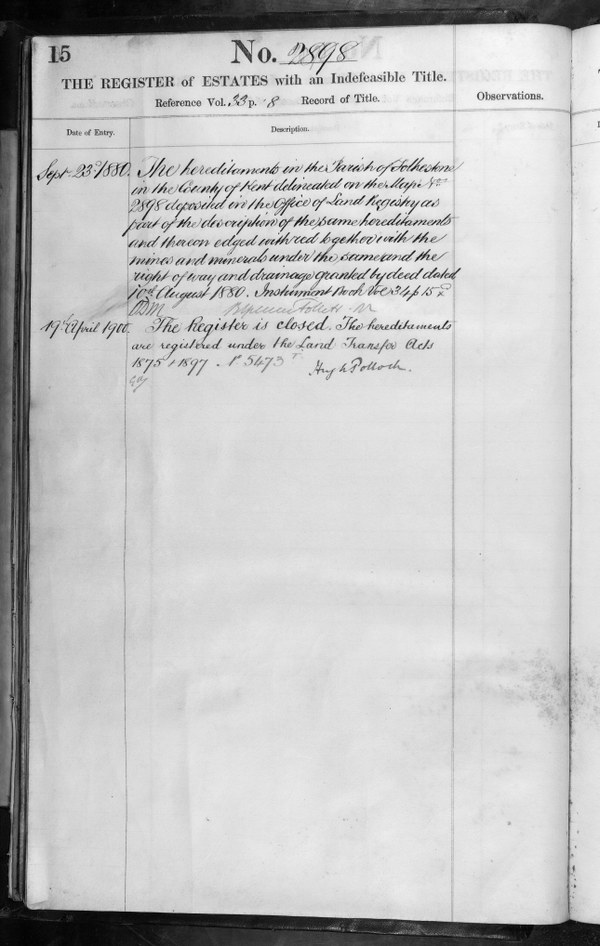 15
No. 2898
THE REGISTER of ESTATES with an Indefeasible Title.
Reference Vol. 33 p. 8 Record of Title.
Observations.
Date of Entry.
Description.
Sept 23rd 1880. The hereditaments in the Parish of Folkestone
in the County of Kent delineated on the Map No
2898 deposited in the Office of Land Registry as
part of the description of the same hereditaments
and thereon edged with red together with the
mines and minerals under the same and the
right of way and drainage granted by deed dated
10th August 1880. Instrument Book Vol 34 p 15
19th April 1900. The Register is closed. The hereditaments
are registered under the Land Transfer Acts
1875 & 1897. No 5473
Hugh Pollock.